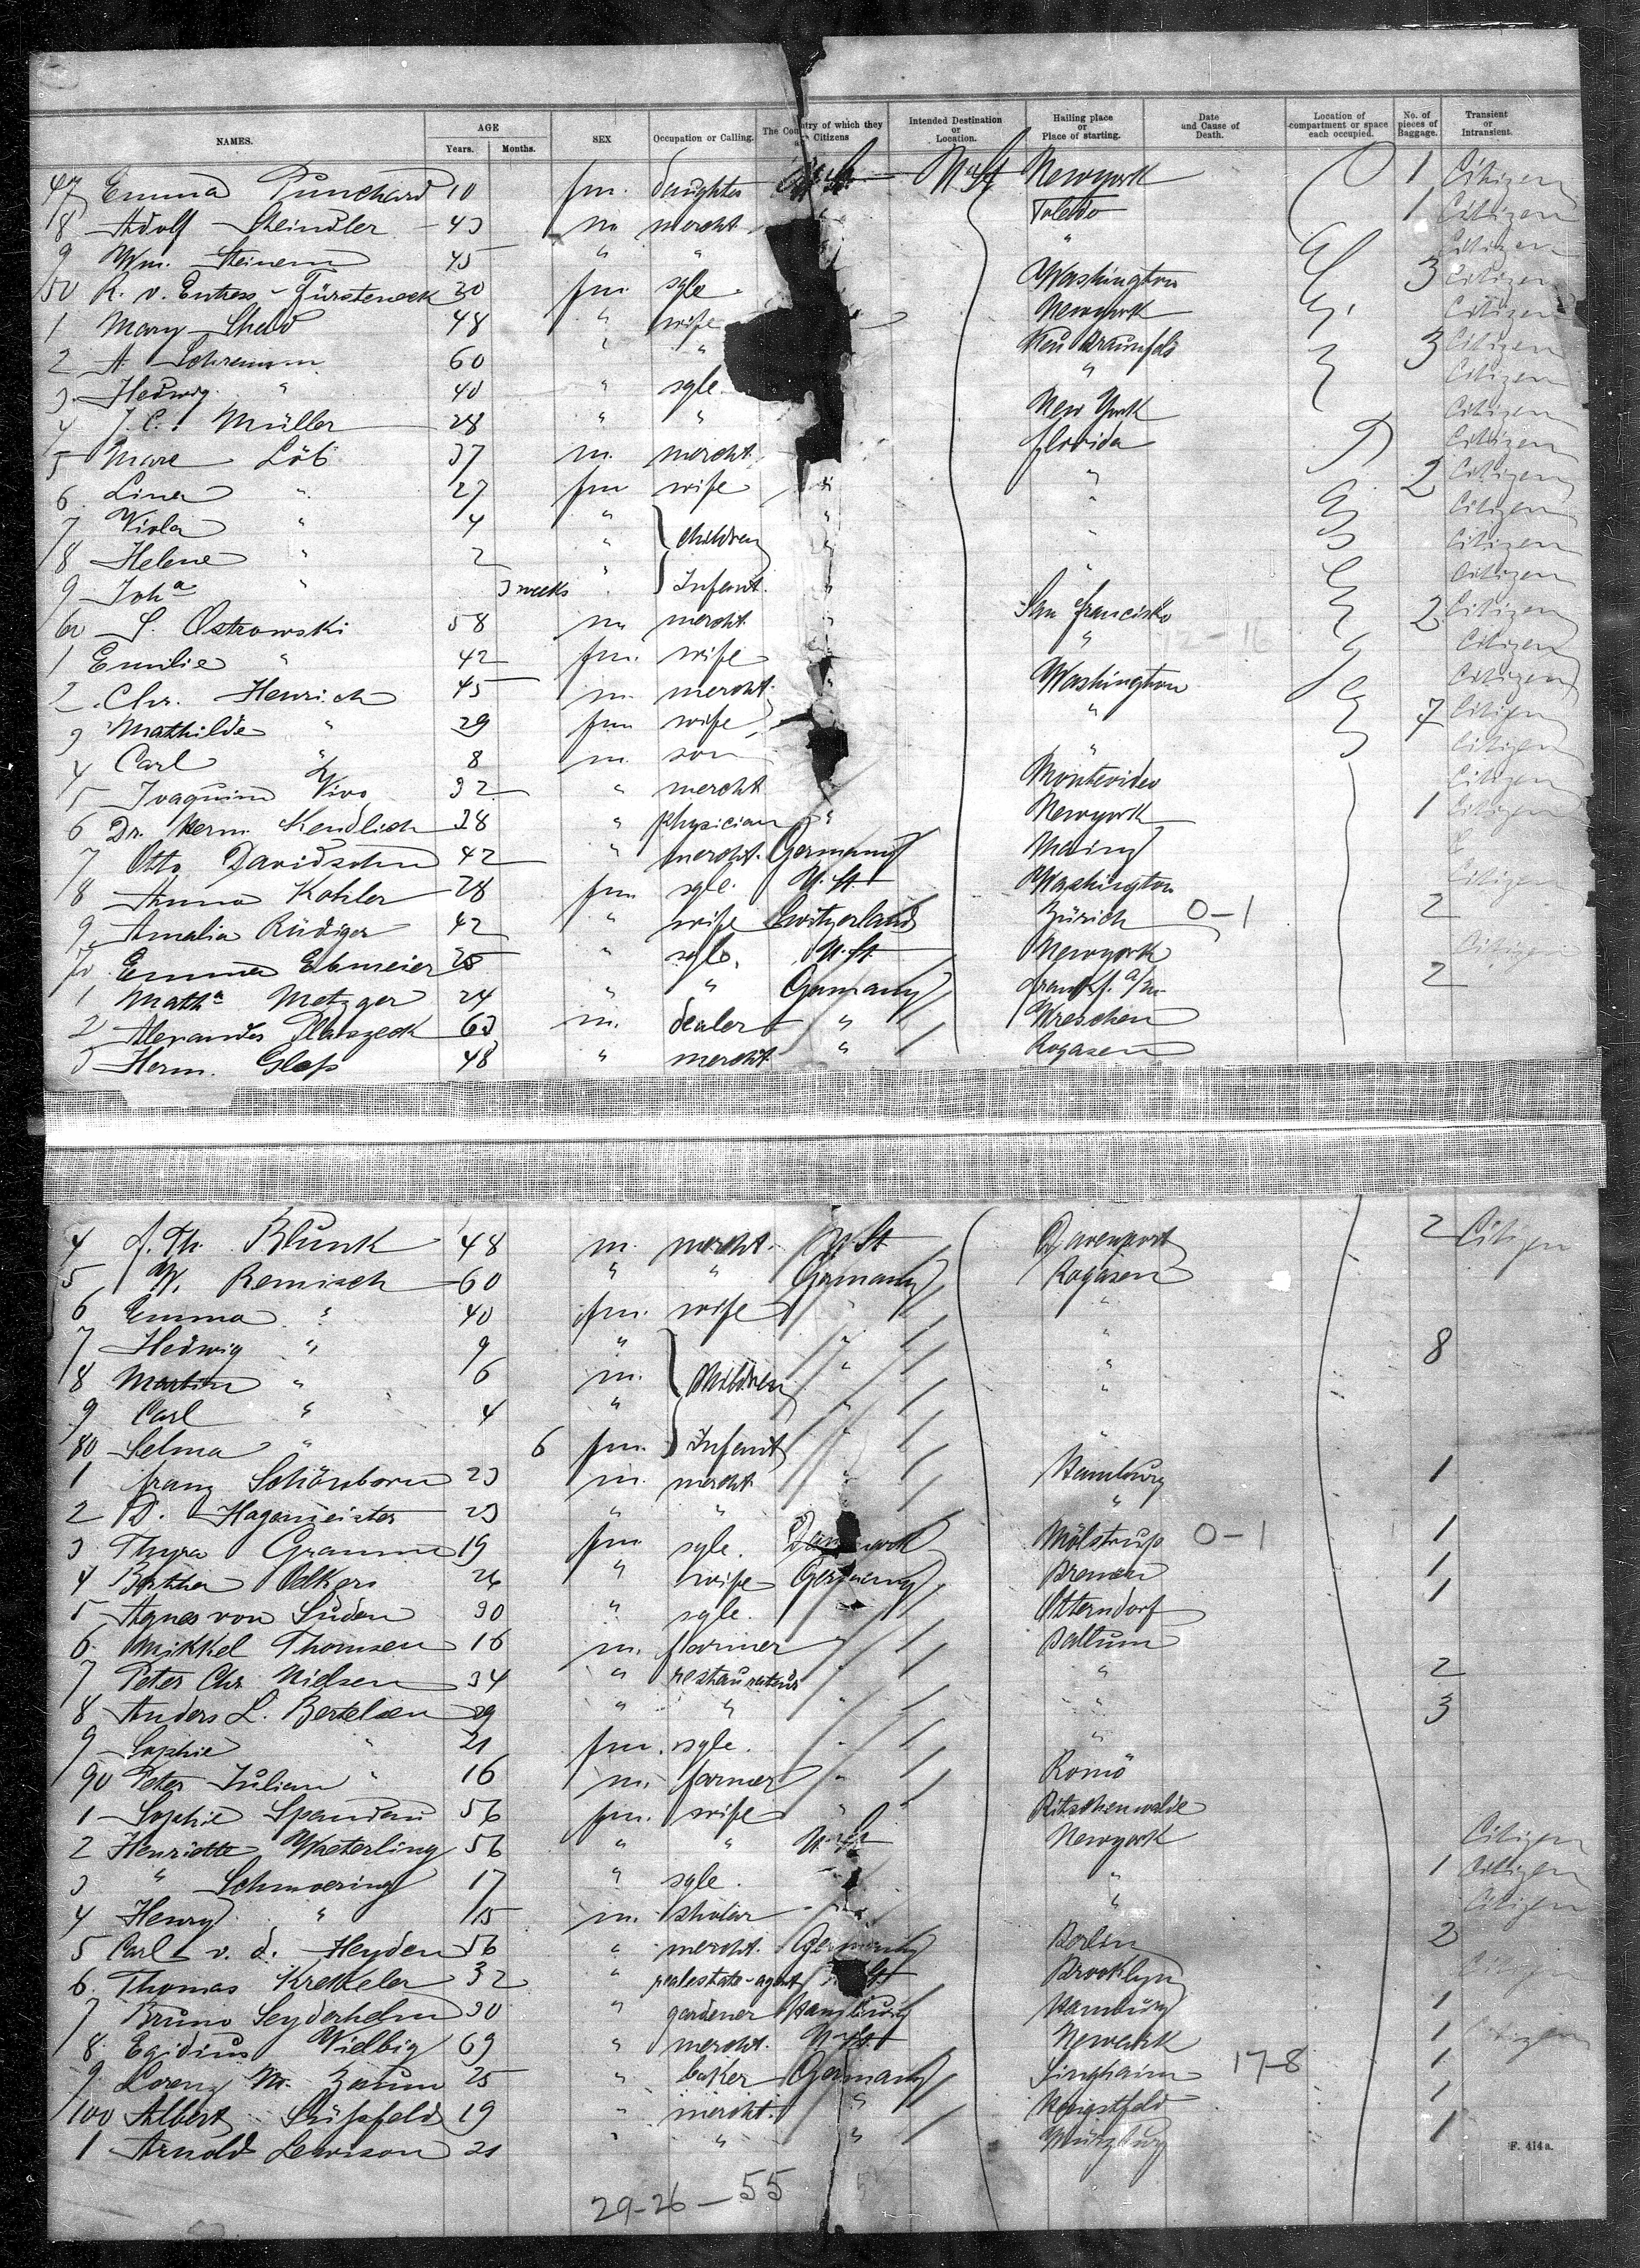 NAMES. AGE Years. Months. SEX Occupation or Calling. The Country of which they are Citizens Intended Destination or Location. Hailing place or Place of starting. Date and Cause of Death. Location of compartment or space each occupied. No. of pieces of Baggage. Transient or Intransient.
47 Emma Punchard 10 fm. daughter U. St. Newyork 1 Citizen
8 Adolf Steindler 43 m mercht. Toledo 1 Citizen
9 Wm. Steinem 45 " " " Citizen
50 R. v. Entress-Fürsteneck 30 fm sgle Washington 3 Citizen
1 Mary Shaw 48 " wife Newyork Citizen
2 A. Schramm 60 " " Neu Braunfels 3 Citizen
3 Hedwig " 40 " sgle. " Citizen
4 J. C. Müller 28 " " New York Citizen
5 Marc Löb 37 m. mercht. Florida Citizen
6 Lina " 27 fm wife " 2 Citizen
7 Viola " 4 " children " " Citizen
8 Helene " 2 " " Citizen
9 Joh.a " 3 weeks " Infant. " " Citizen
60 S. Ostrowski 58 m mercht. " San Francisko 2 Citizen
1 Emilie " 42 fm. wife " 12-16 Citizen
2 Chr. Henrich 45 m. mercht. " Washington Citizen
3 Mathilde " 29 fm wife " 7 Citizen
4 Carl " 8 m. son " Citizen
5 Joaquim Vivo 32 " mercht Montevideo Citizen
6 Dr. Herm. Kendlich 38 " physician " Newyork 1 Citizen
7 Otto Davidsohn 42 " mercht. Germany Mainz
8 Anna Kohler 28 fm sgle. U. St Washington Citizen
9 Amalia Rüdiger 42 " wife Switzerland Zürich 0-1 2
70 Emma Ebmeier 25 " sgle. U. St Newyork Citizen
1 Math.a Metzger 24 " " Germany Frankf. a/m 2
2 Alexander Plaszeck 63 m. dealer " Wreschen
3 Herm. Glass 48 " mercht. " Rogasen
4 J. Th. Blunk 48 m. mercht. U. St Davenport 2 Citizen
5 W. Remisch 60 " " Germany Rogasen
6 Emma " 40 fm. wife " "
7 Hedwig " 9 " " " 8
8 Martin " 6 m. children " "
9 Carl " 4 " " "
80 Selma " 6 fm. Infant " "
1 Franz Schönborn 23 m. mercht " Hamburg 1
2 D. Hagemeister 23 " " "
3 Thyra Gramm 19 fm sgle. Danmark Mölstrup 0-1 1
4 Bertha Oelkers 26 " wife Germany Bremen 1
5 Agnes von Süden 30 " sgle. Otterndorf 1
6 Mikkel Thomsen 16 m. farmer " Ballum
7 Peter Chr. Nielsen 34 " restaurateur " " 2
8 Anders L. Bertelsen 29 " " " " 3
9 Sophie " 21 fm. sgle. " "
90 Peter Julian " 16 m. farmer " Romö
1 Sophie Spandau 56 fm. wife " Ritschenwalde
2 Henriette Waeterling 56 " " U. St Newyork Citizen
3 " Schmoering 17 " sgle. " 1 Citizen
4 Henry " 15 m. scholar " Citizen
5 Carl v. d. Heyden 56 " mercht. Germany Berlin 2
6 Thomas Krekeler 32 " realestate-agent Brooklyn Citizen
7 Bruno Seyderhelm 30 " gardener Hamburg Hamburg 1
8 Egidius Vielbig 69 " mercht. U. St. Newark 1 Citizen
9 Lorenz M. Baum 25 " baker Germany Singhaim 17-8 1
100 Albert Süssfeld 19 " mercht. " 1
1 Arnold Lewison 21 " " " Würzburg 1
F. 414a.
29-26-55